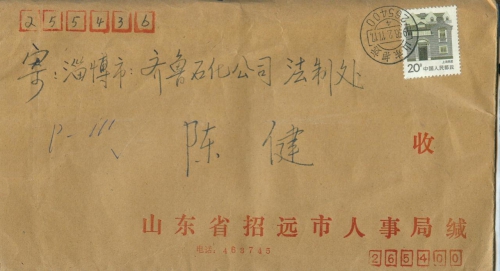 255436
寄：淄博市：齐鲁石化公司 法制处
陈健 收
山东省招远市人事局缄
电话：462745
265400
20分 中国人民邮政